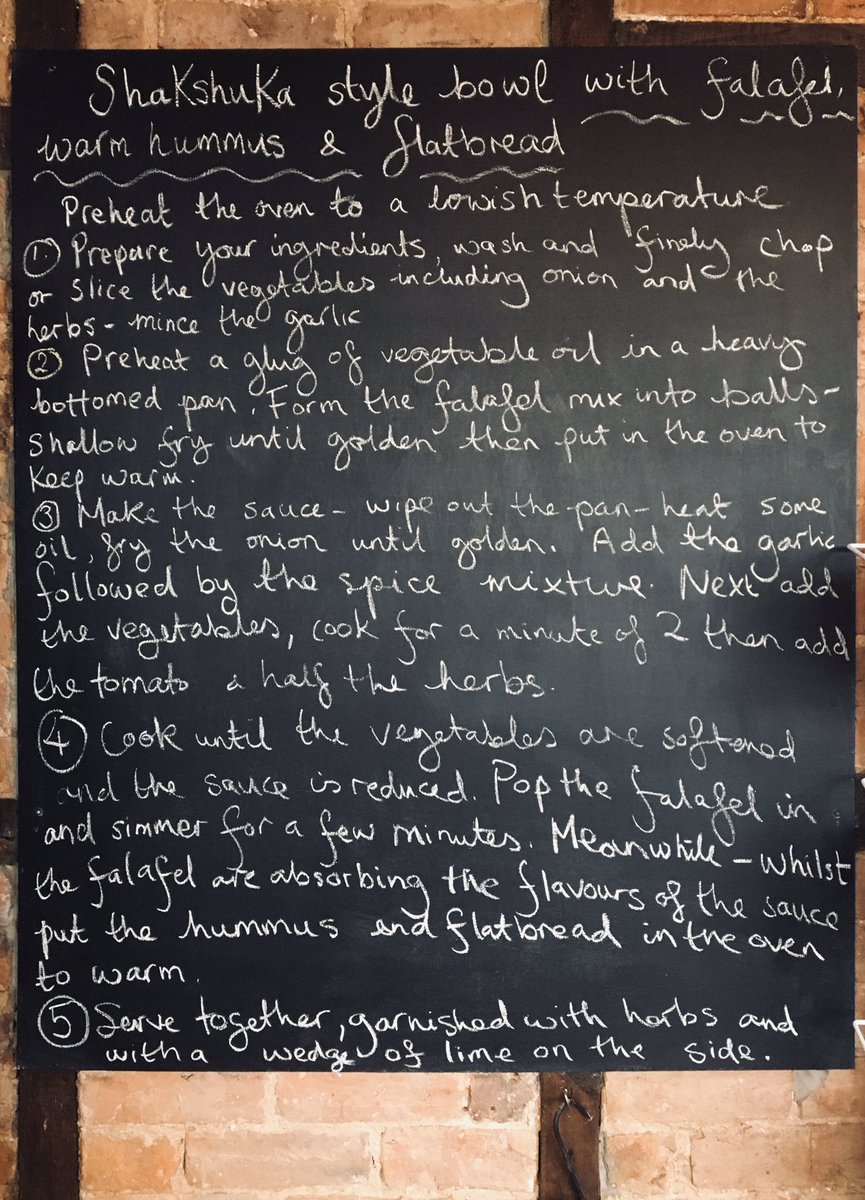 Shakshuka style bowl with falafel,
warm hummus & flatbread
Preheat the oven to a lowish temperature
1. Prepare your ingredients, wash and finely chop
or slice the vegetables including onion and the
herbs - mince the garlic
2 Preheat a glug of vegetable oil in a heavy
bottomed pan. Form the falafel mix into balls -
shallow fry until golden then put in the oven to
keep warm.
3 Make the sauce - wipe out the pan - heat some
oil, fry the onion until golden. Add the garlic
followed by the spice mixture. Next add
the vegetables, cook for a minute of 2 then add
the tomato & half the herbs.
4 Cook until the vegetables are softened
and the sauce is reduced. Pop the falafel in
and simmer for a few minutes. Meanwhile - whilst
the falafel are absorbing the flavours of the sauce
put the hummus and flatbread in the oven
to warm.
5 Serve together, garnished with herbs and
with a wedge of lime on the side.